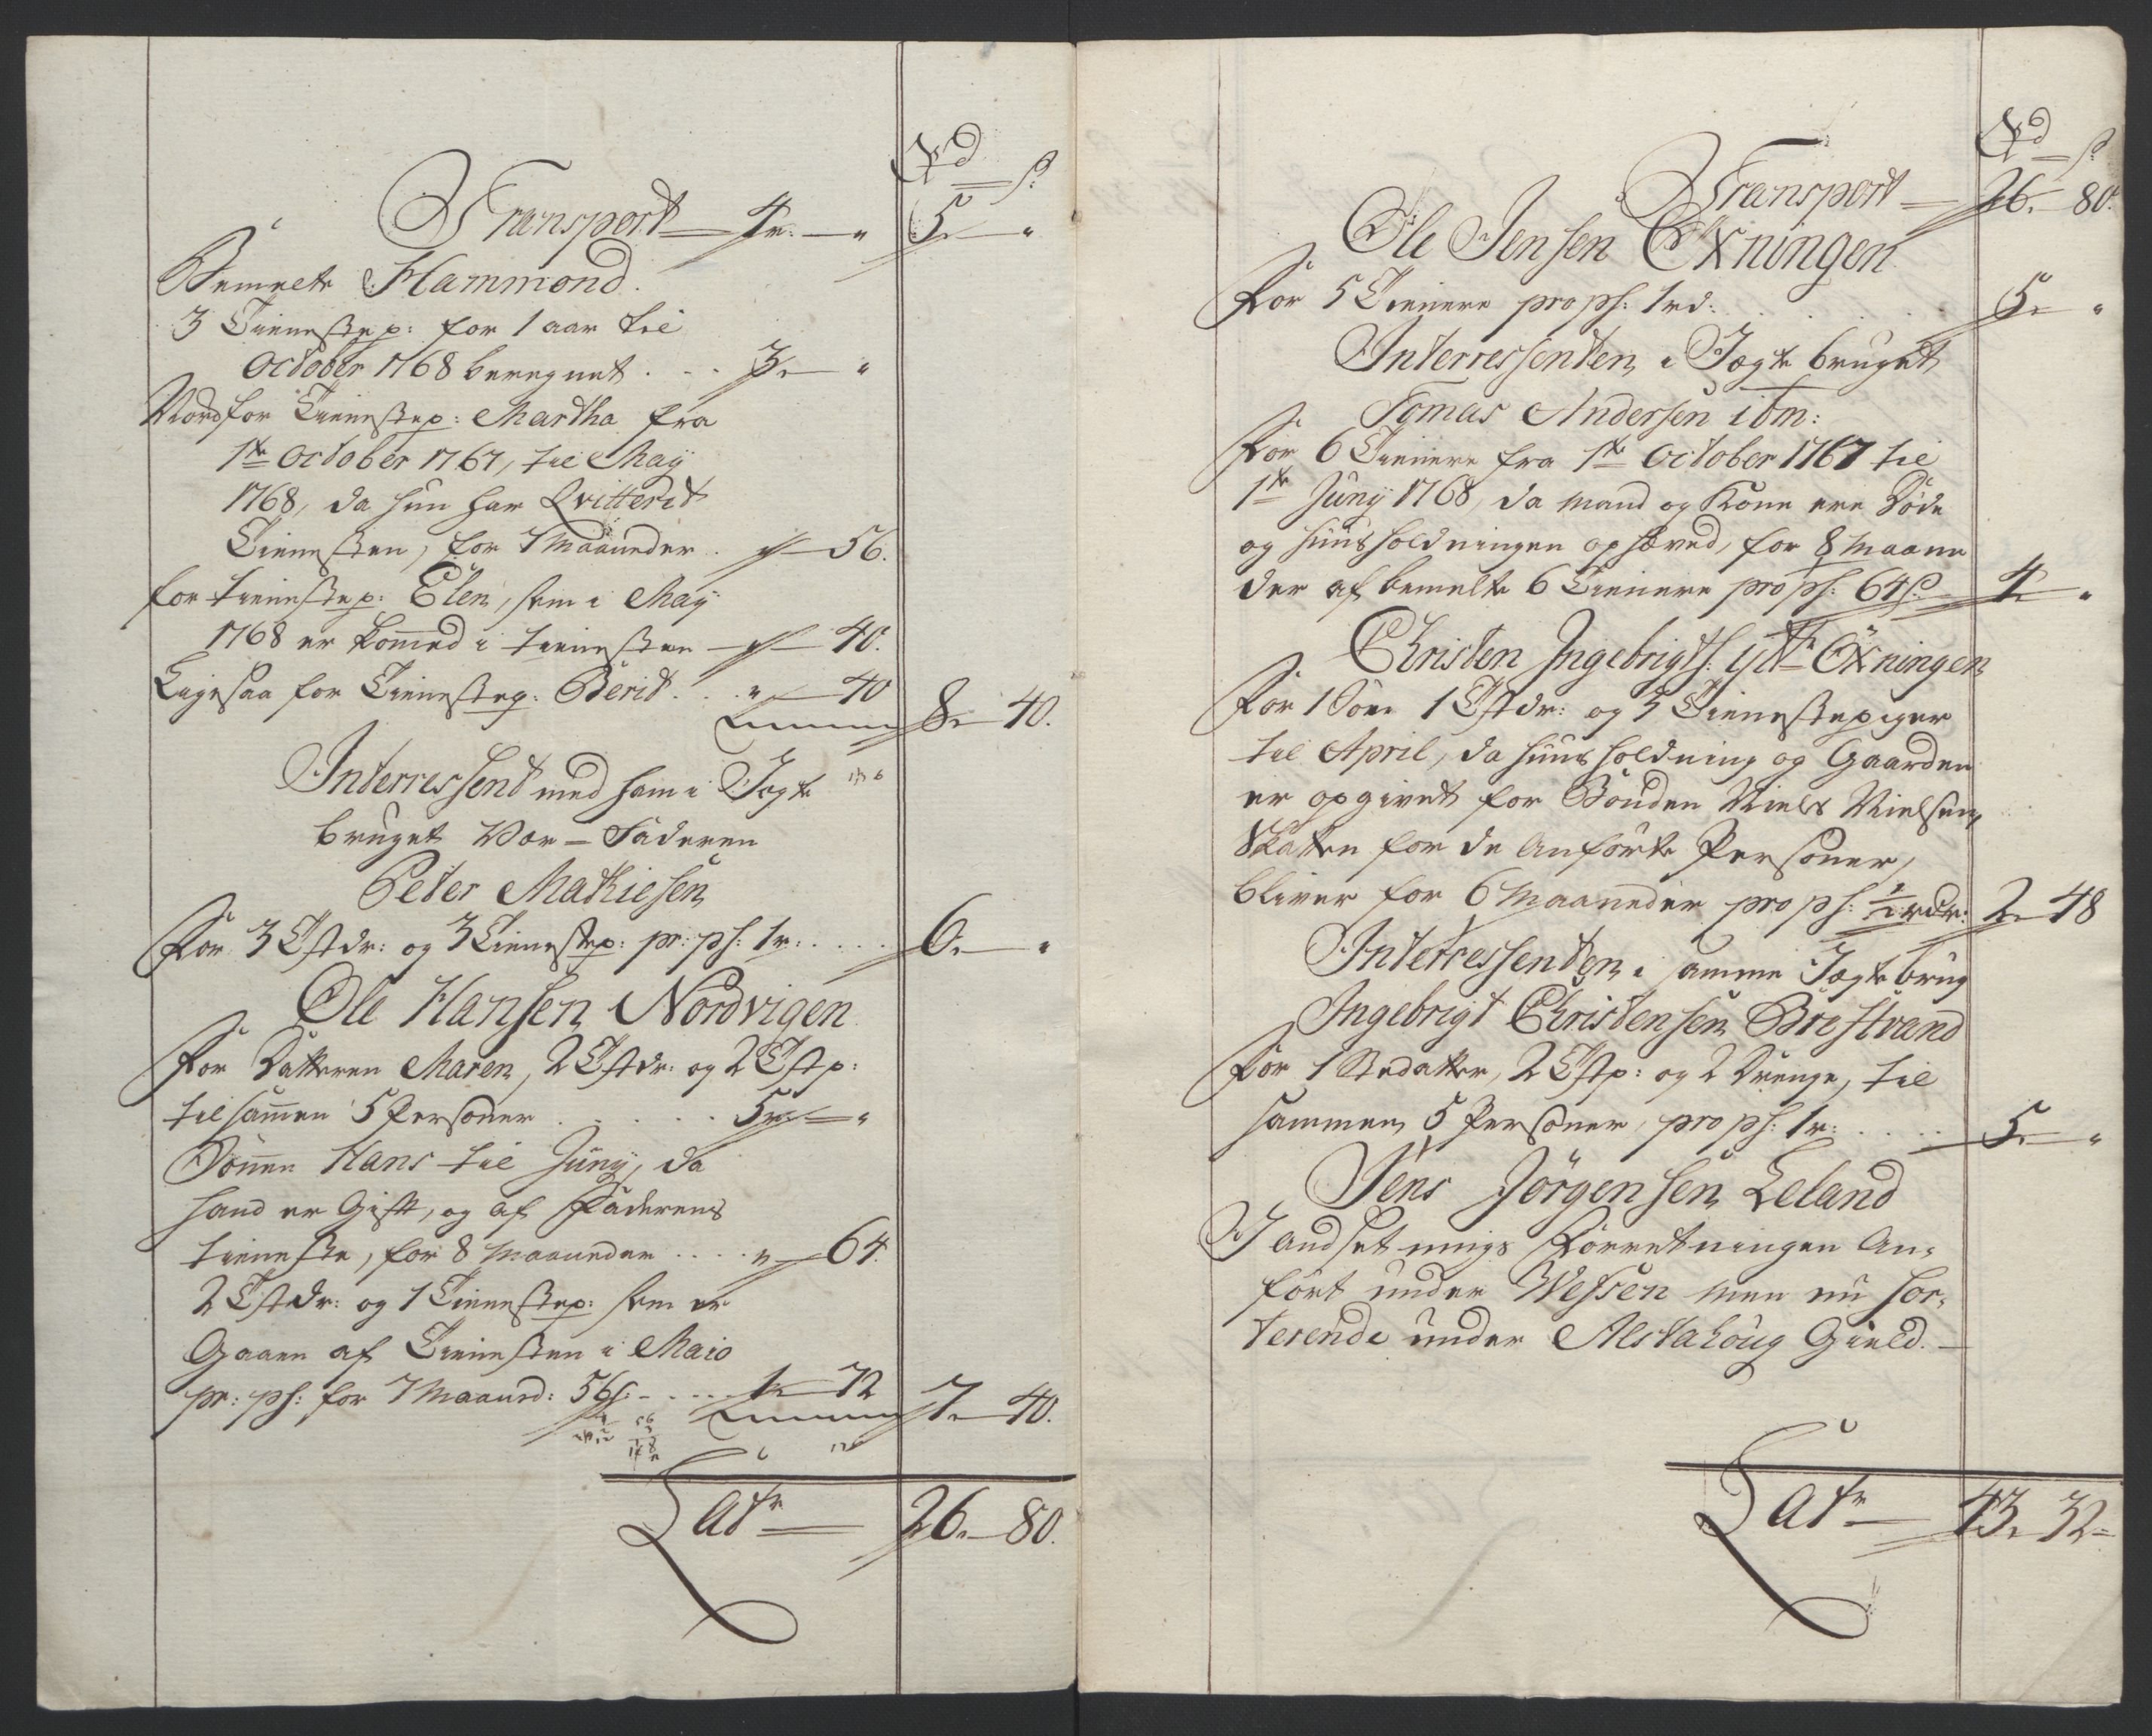 Rd ß
Transport 4r. — " 5. — "
Bemelte Hammond.
3 Tienestep: for 1 aar til
October 1768 beregnet . . . 3. — "
Nordfor Tienestep: Martha fra
1te October 1767, til May
1768, da hun har Qvitterit
Tienesten, for 7 Maaneder . " — 56.
for tienestep: Elen, som i May
1768 er kommed i tienesten — " — 40.
Ligesaa for Tienestep: Berit . . . " — 40
8. — 40.
Interressent med ham i Jægte
bruget Vær-Faderen
Peter Mathiesen
For 3 Tstdr: og 3 Tienestep: pr: ps: 1r: . . . . 6. — "
Ole Hansen Nordvigen
For Datteren Maren, 2 Tstdr: og 2 Tstp:
tilsammen 5 Personer . . . . . 5r — "
Sönnen Hans til Juny, da
hand er Gift, og af Faderens
tieneste, for 8 Maaneder . . . . " — 64.
2 Tstdr: og 1 Tienestep: som er
Gaaen af Tienesten i Maio
pr: ps: for 7 Maaned: 56ß: . . . . 1 — 72 7. — 40.
Latr — 26. — 80.
Rd ß
Transport — 26. — 80.
Ole Jensen Öxningen
For 5 Tienere pro ps: 1rd: . . . . . 5. "
Interressenten i Jægte bruget
Tomas Andersen ibm:
For 6 Tienere fra 1te October 1767 til
1te Juny 1768, da Mand og Kone ere Döde
og huusholdningen ophæved, for 8 Maane
der af bemelte 6 Tienere pro ps: 64ß — 4. "
Christen Ingebrigts: ytr Öxningen
For 1 Sön 1 Tstdr: og 3 Tienestepiger
til April, da huusholdning og Gaarden
er opgivet for Bonden Niels Nielsen,
Skatten for de Anförte Personer,
bliver for 6 Maaneder pro ps: 1/2 rdr: 2. — 48
Interressenten i samme Jægtebrug
Ingebrigt Christensen Brestrand
For 1 Stedatter, 2 Tstp: og 2 Drenge, til
sammen 5 Personer, pro ps: 1r: . . . . 5. — "
Jens Jörgensen Leland
I andsetnings Forretningen An-
fört under Wefsen men nu sor-
terende under Alstahoug Gield. —
Latr — 43. 32